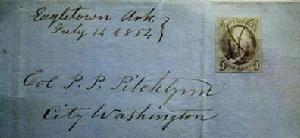 Eagletown Ark.
July 14 1854
Col P. P. Pitchlynn
City Washington